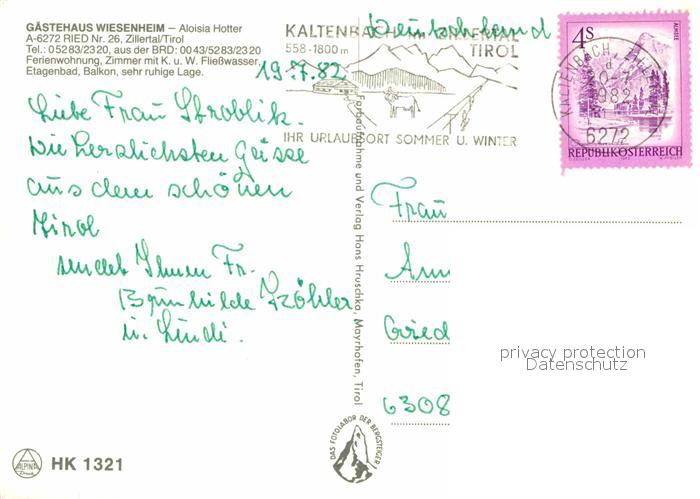 GÄSTEHAUS WIESENHEIM – Aloisia Hotter
A-6272 RIED Nr. 26, Zillertal/Tirol
Tel.: 05283/2320, aus der BRD: 0043/5283/2320
Ferienwohnung, Zimmer mit K. u. W. Fließwasser,
Etagenbad, Balkon, sehr ruhige Lage.
KALTENBACH IM ZILLERTAL
558-1800 m TIROL
IHR URLAUBSORT SOMMER U. WINTER
Deutschland
4 S
ALMSEE
KALTENBACH
1982
6272
REPUBLIK ÖSTERREICH
19.7.82
Liebe Frau Stroblik.
Die herzlichsten Grüsse
aus dem schönen
Tirol
sendet Ihnen Fr.
Brunhilde Köhler
u. Lindi.
Farbaufnahme und Verlag Hans Hruschka, Mayrhofen, Tirol
Frau
Am
Gried
6308
privacy protection
Datenschutz
DAS FOTOLABOR DER BERGSTEIGER
ALPINA
Druck
HK 1321